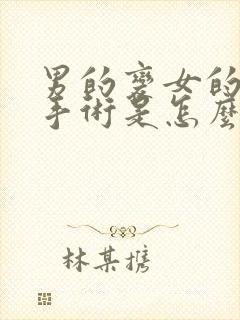 男的变女的
手術是怎麼
林某攜